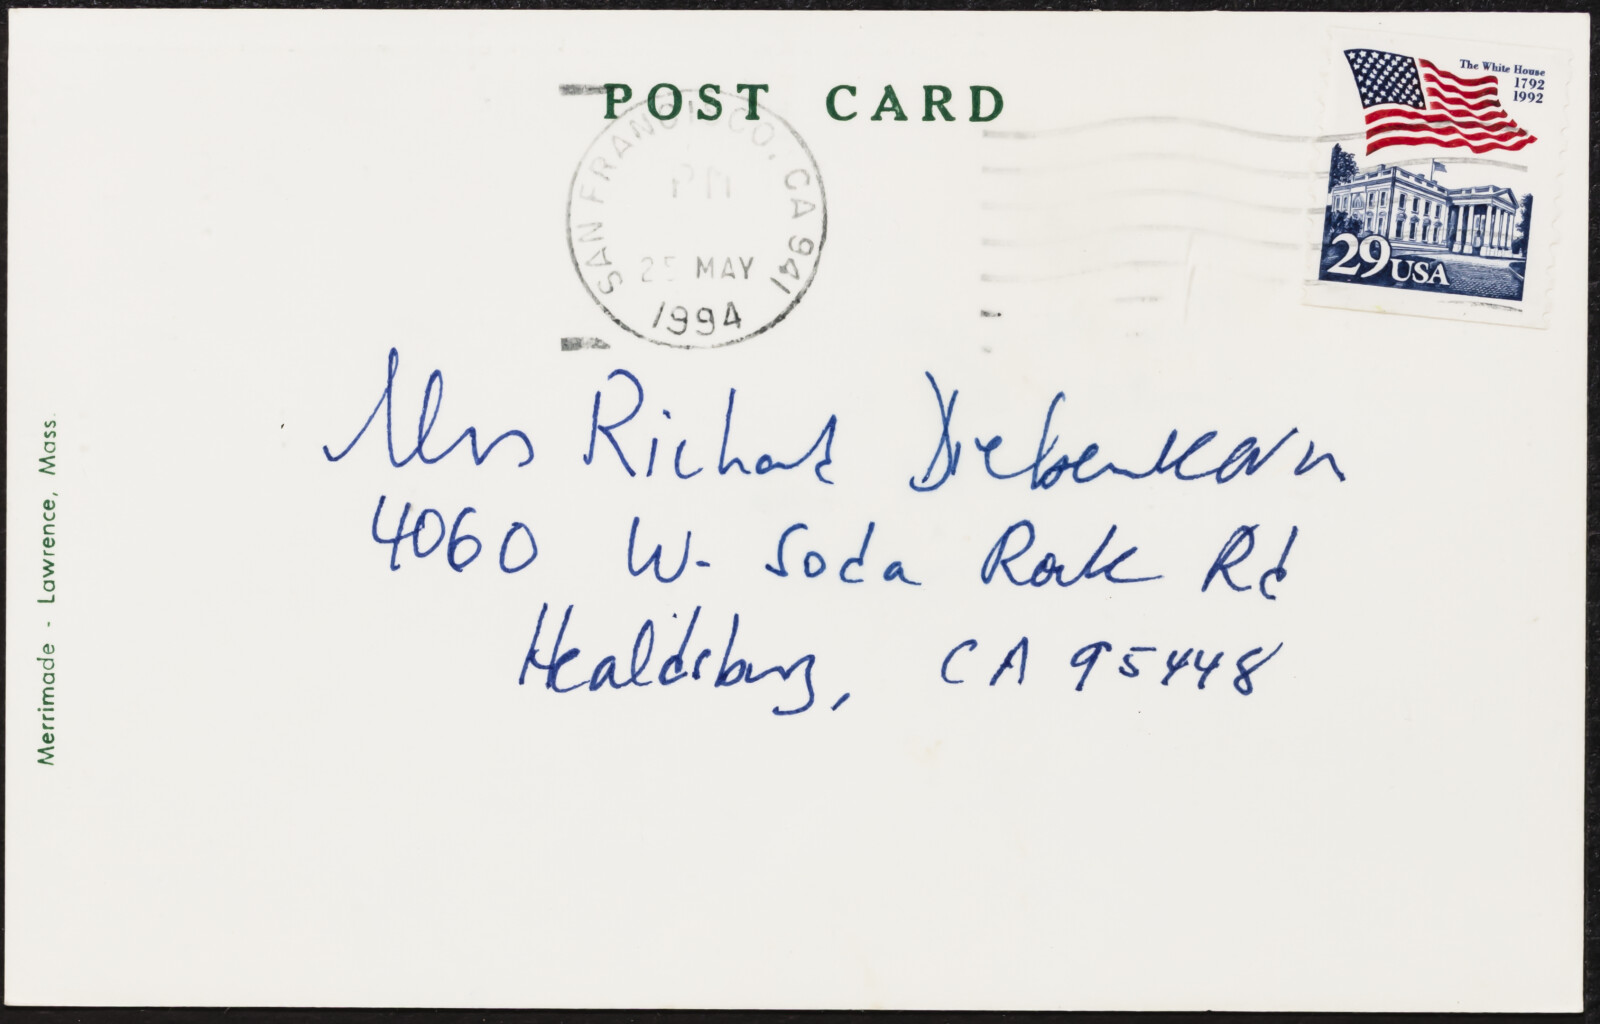 POST CARD
The White House
1792
1992
29 USA
SAN FRANCISCO, CA 941
PM
25 MAY
1994
Mrs Richard Diebenkorn
4060 W. Soda Rock Rd
Healdsburg, CA 95448
Merrimade - Lawrence, Mass.